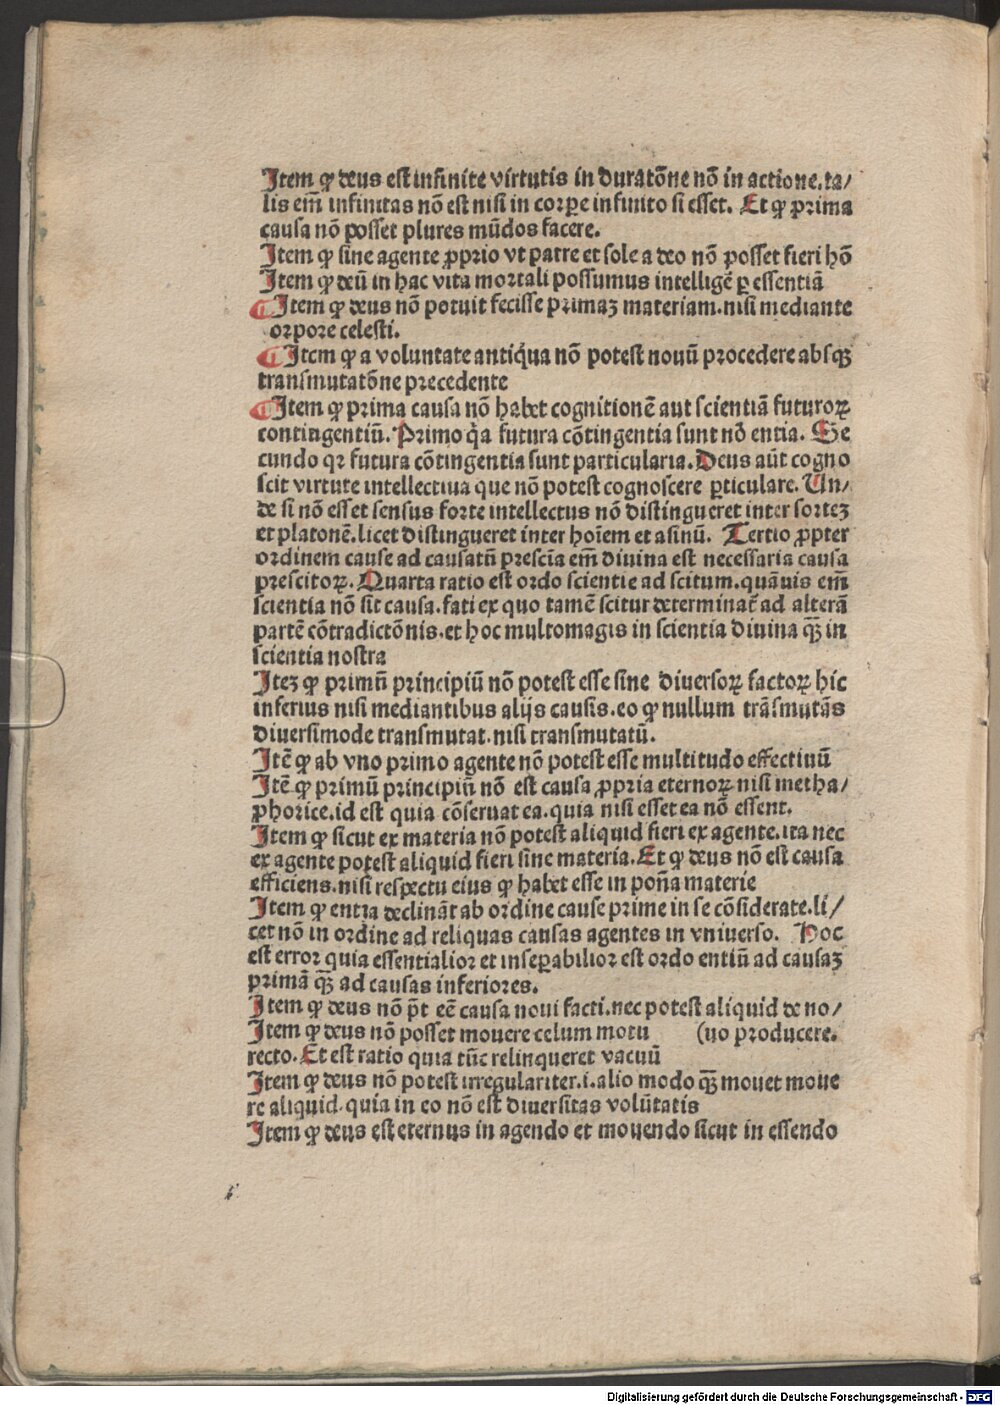 Item ꝙ deus est infinite virtutis in duratōne nō in actione.ta/
lis em̄ infinitas nō est nisi in corꝑe infinito si esset. Et ꝙ prima
causa nō posset plures mūdos facere.
Item ꝙ sine agente ꝓprio vt patre et sole a deo nō posset fieri hō
Item ꝙ deū in hac vita mortali possumus intelligē ꝑ essentiā
¶ Item ꝙ deus nō potuit fecisse primaꝫ materiam.nisi mediante
orpore celesti.
¶ Item ꝙ a voluntate antiq̄ua nō potest nouū procedere absqꝫ
transmutatōne precedente
¶ Item ꝙ prima causa nō habet cognitionē aut scientiā futuroꝝ
contingentiū. Primo q̄a futura cōtingentia sunt nō entia. Se
cundo qꝛ futura cōtingentia sunt particularia. Deus aūt cogno
scit virtute intellectiua que nō potest cognoscere ꝑticulare. Un/
de si nō esset sensus forte intellectus nō distingueret inter sorteꝫ
et platonē.licet distingueret inter hoīem et asinū. Tertio ꝓpter
ordinem cause ad causatū prescīa em̄ diuina est necessaria causa
prescitoꝝ. Quarta ratio est ordo scientie ad scitum.quāuis em̄
scientia nō sit causa.fati ex quo tamē scitur determinat̄ ad alterā
partē cōtradictōnis.et hoc multomagis in scientia diuina qꝫ̄ in
scientia nostra
Iteꝫ ꝙ primū principiū nō potest esse sine diuersoꝝ factoꝝ hic
inferius nisi mediantibus alijs causis.eo ꝙ nullum trāsmutās
diuersimode transmutat.nisi transmutatū.
Itē ꝙ ab vno primo agente nō potest esse multitudo effectiuū
Itē ꝙ primū principiū nō est causa ꝓpria eternoꝝ nisi metha/
phorice.id est quia cōseruat ea.quia nisi esset ea nō essent.
Item ꝙ sicut ex materia nō potest aliquid fieri ex agente.ita nec
ex agente potest aliquid fieri sine materia. Et ꝙ deus nō est causa
efficiens.nisi respectu eius ꝙ habet esse in poña materie
Item ꝙ entia declināt ab ordine cause prime in se cōsiderate.li/
cet nō in ordine ad reliquas causas agentes in vniuerso. Hoc
est error quia essentialior et inseꝑabilior est ordo entiū ad causaꝫ
primā qꝫ̄ ad causas inferiores.
Item ꝙ deus nō p̄t eē causa noui facti.nec potest aliquid de no/
Item ꝙ deus nō posset mouere celum motu (uo producere.
recto. Et est ratio quia tūc relinqueret vacuū
Item ꝙ deus nō potest irregulariter.i.alio modo qꝫ̄ mouet moue
re aliquid.quia in eo nō est diuersitas volūtatis
Item ꝙ deus est eternus in agendo et mouendo sicut in essendo
Digitalisierung gefördert durch die Deutsche Forschungsgemeinschaft - DFG